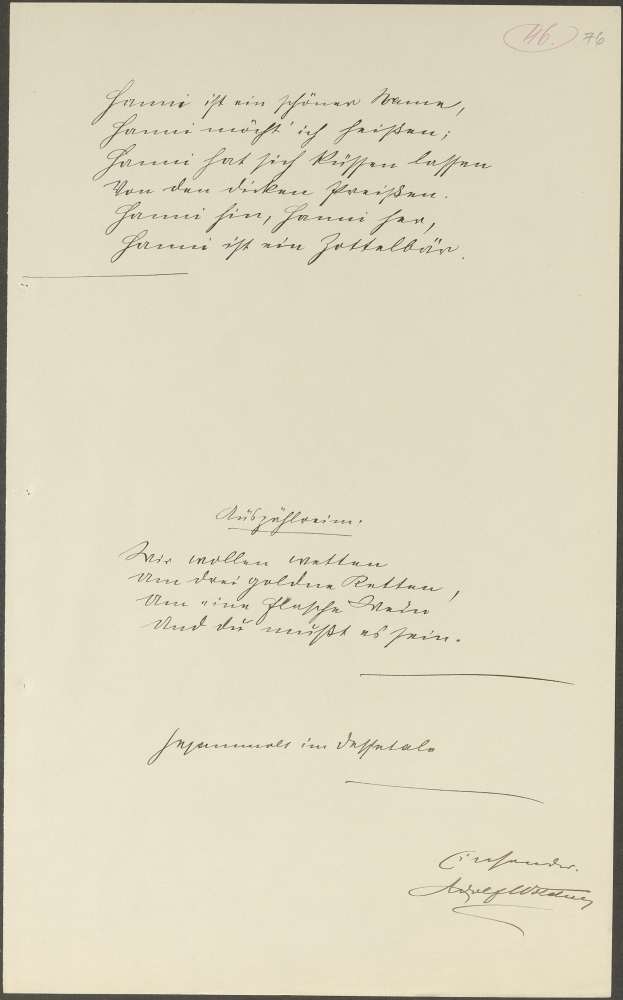 46. 76
Hanni ist ein schöner Name,
Hanni möcht' ich heißen;
Hanni hat sich küssen lassen
Von den dicken Preißen.
Hanni hin, Hanni her,
Hanni ist ein Zottelbär.
Auszählreim.
Wir wollen wetten
Um drei goldne Ketten,
Um eine Flasche Wein
Und du mußt es sein.
im
Einsender.
Adolf